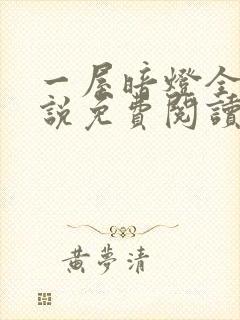 一屋暗燈全
說免費閱讀
黃夢清